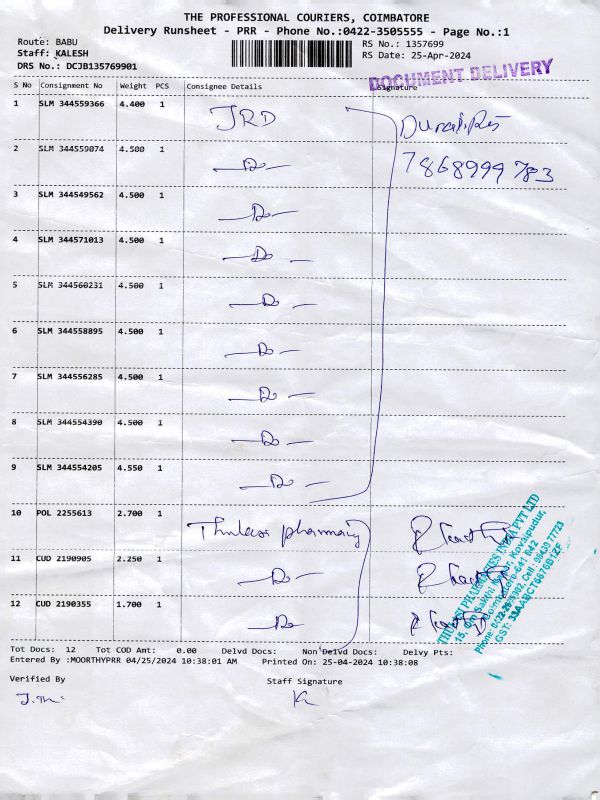 THE PROFESSIONAL COURIERS, COIMBATORE
Delivery Runsheet - PRR - Phone No.:0422-3505555 - Page No.:1
Route: BABU
Staff: KALESH
DRS No.: DCJB135769901
RS No.: 1357699
RS Date: 25-Apr-2024
DOCUMENT DELIVERY
S No Consignment No Weight PCS Consignee Details Signature
1 SLM 344559366 4.400 1 JRD
2 SLM 344559074 4.500 1 — Do — 7868999783
3 SLM 344549562 4.500 1 — Do —
4 SLM 344571013 4.500 1 — Do —
5 SLM 344560231 4.500 1 — Do —
6 SLM 344558895 4.500 1 — Do —
7 SLM 344556285 4.500 1 — Do —
8 SLM 344554390 4.500 1 — Do —
9 SLM 344554205 4.550 1 — Do —
10 POL 2255613 2.700 1 Thulasi pharmacy
11 CUD 2190905 2.250 1 — Do —
12 CUD 2190355 1.700 1 — Do
THULASI PHARMACIES INDIA PVT LTD
Coimbatore-641 642
Tot Docs: 12 Tot COD Amt: 0.00 Delvd Docs: Non Delvd Docs: Delvy Pts:
Entered By :MOORTHYPRR 04/25/2024 10:38:01 AM Printed On: 25-04-2024 10:38:08
Verified By Staff Signature